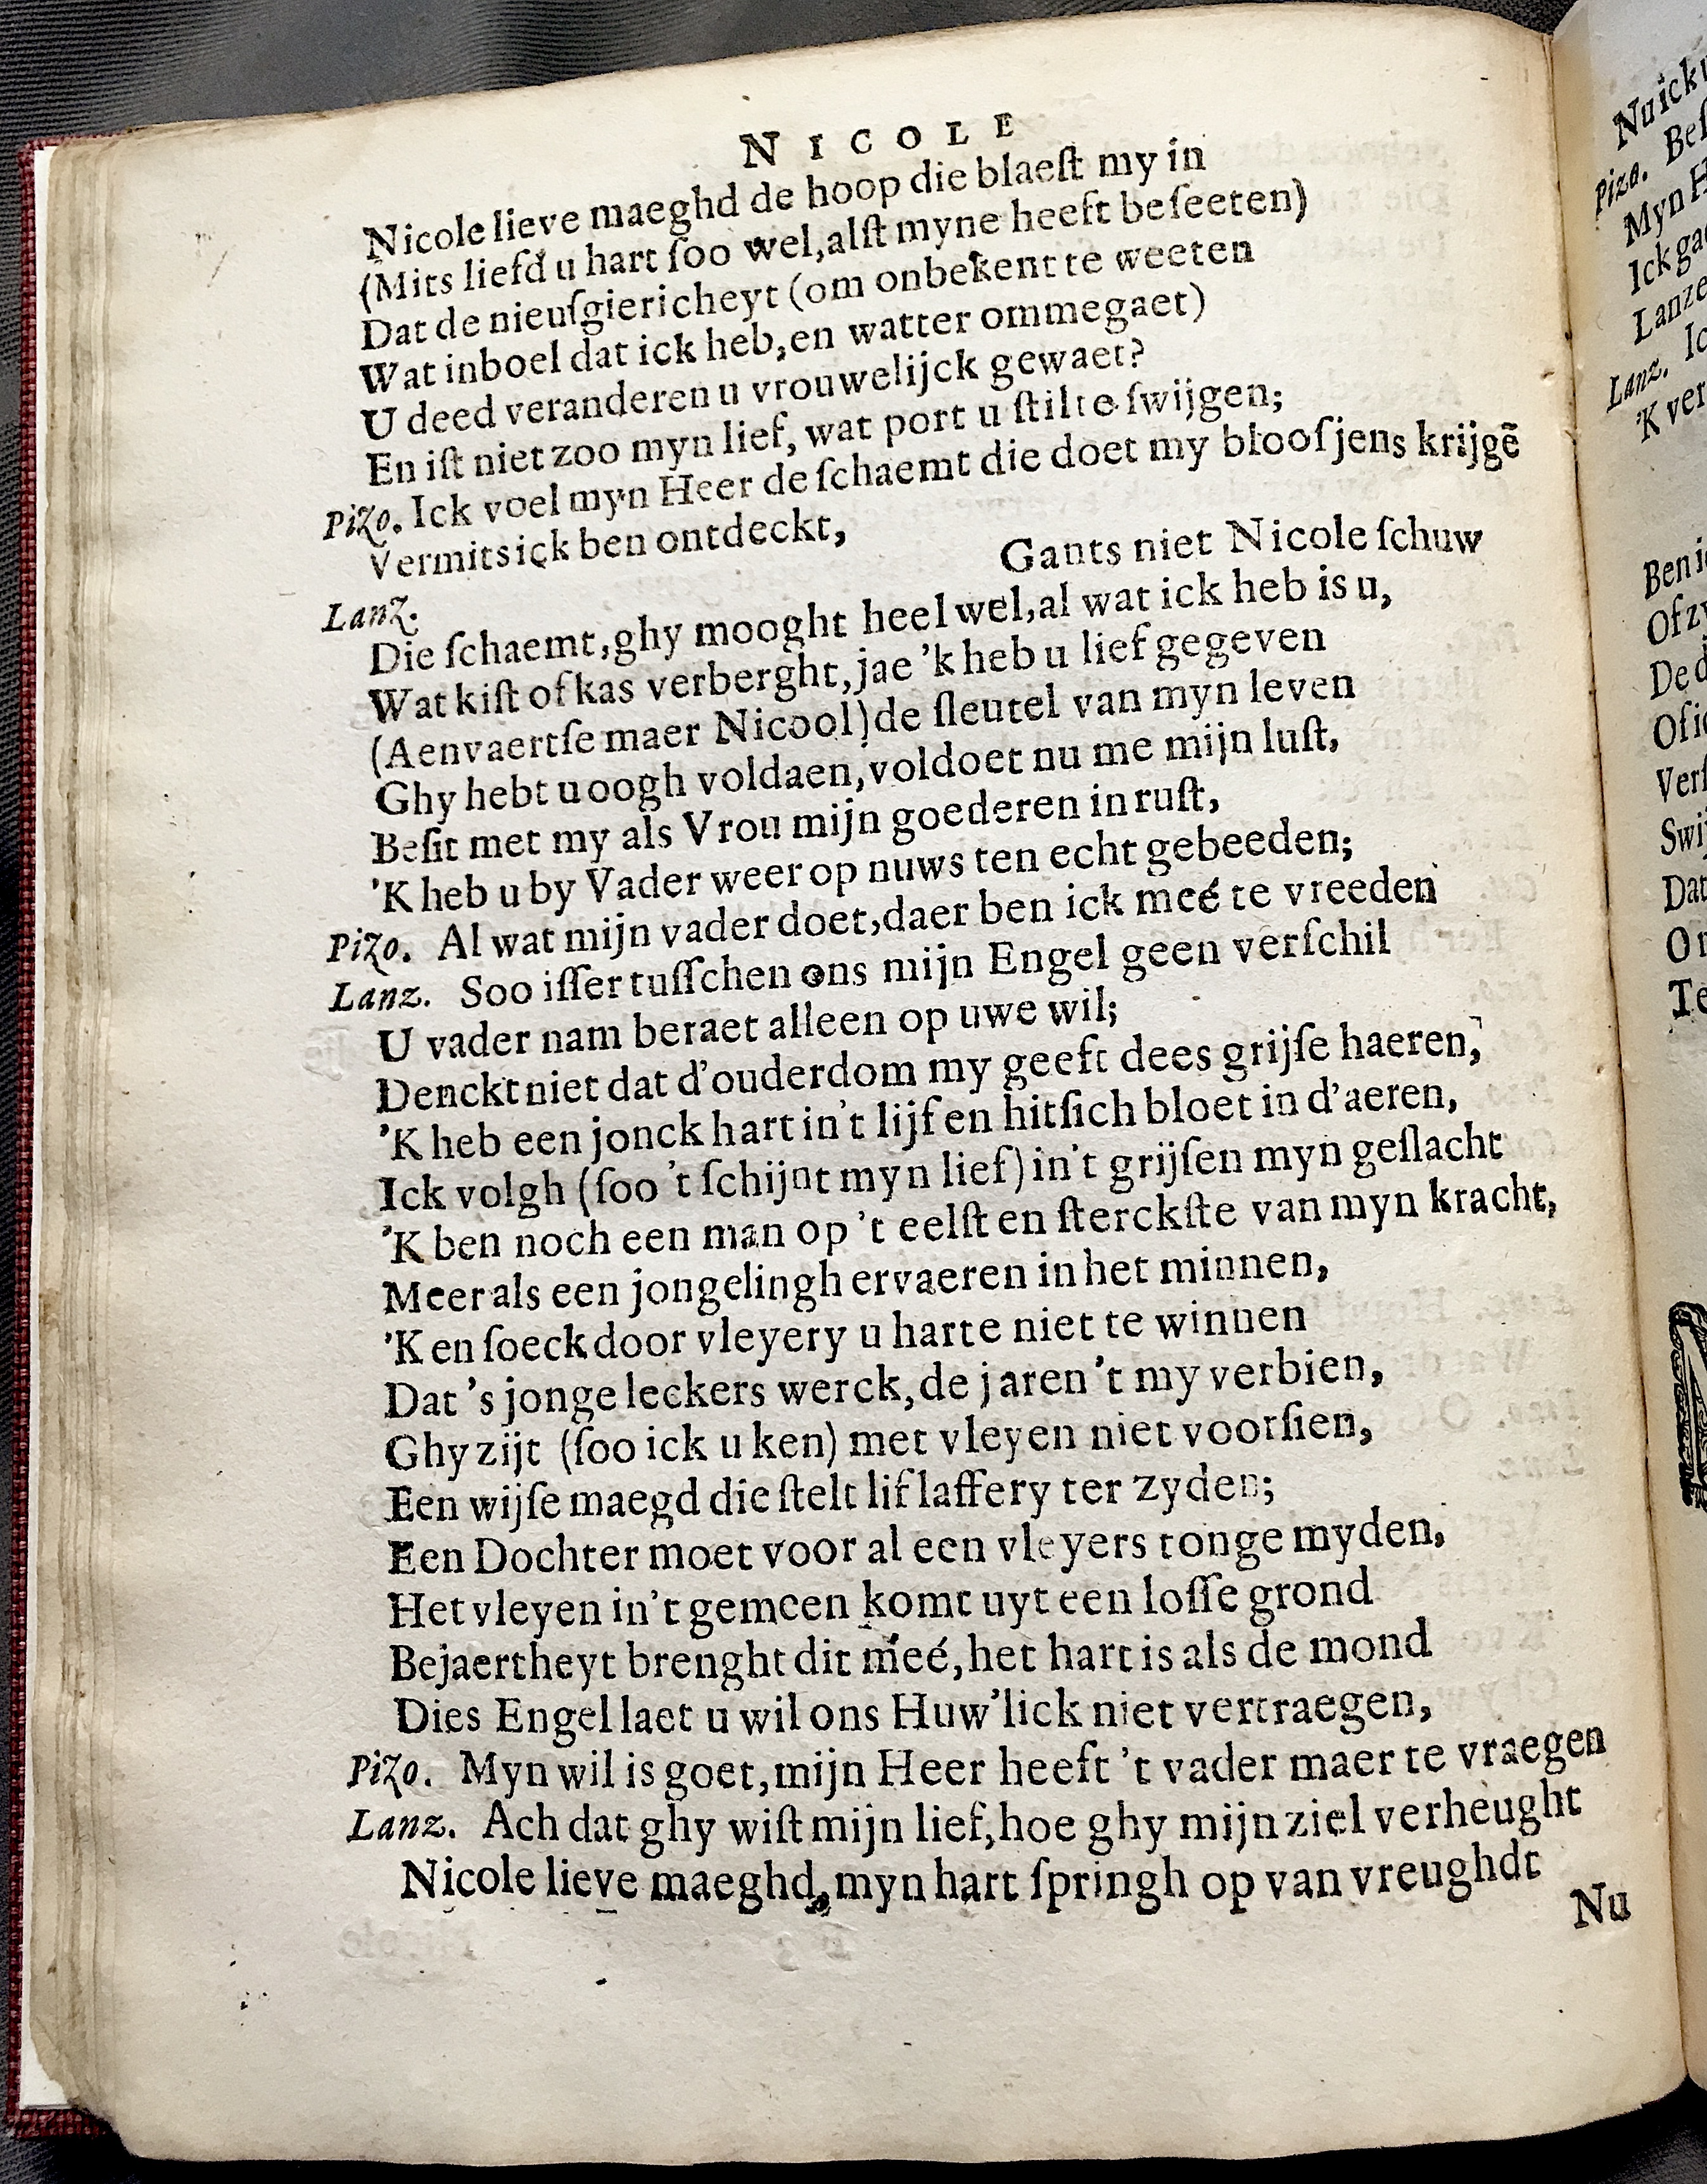 NICOLE
Nicole lieve maeghd de hoop die blaeſt my in
(Mits liefd u hart ſoo wel, alſt myne heeft beſeeten)
Dat de nieuſgiericheyt (om onbekent te weeten
Wat inboel dat ick heb, en watter ommegaet)
U deed veranderen u vrouwelijck gewaet?
En iſt niet zoo myn lief, wat port u ſtilte ſwijgen;
Pizo. Ick voel myn Heer de ſchaemt die doet my blooſjens krijgẽ
Vermits ick ben ontdeckt,
Lanz. Gants niet Nicole ſchuw
Die ſchaemt, ghy mooght heel wel, al wat ick heb is u,
Wat kiſt of kas verberght, jae 'k heb u lief gegeven
(Aenvaertſe maer Nicool) de ſleutel van myn leven
Ghy hebt u oogh voldaen, voldoet nu me mijn luſt,
Beſit met my als Vrou mijn goederen in ruſt,
'K heb u by Vader weer op nuws ten echt gebeeden;
Pizo. Al wat mijn vader doet, daer ben ick meé te vreeden
Lanz. Soo iſſer tuſſchen ons mijn Engel geen verſchil
U vader nam beraet alleen op uwe wil;
Denckt niet dat d'ouderdom my geeft dees grijſe haeren,
'K heb een jonck hart in't lijf en hitſich bloet in d'aeren,
Ick volgh (ſoo 't ſchijnt myn lief) in't grijſen myn geſlacht
'K ben noch een man op 't eelſt en ſterckſte van myn kracht,
Meer als een jongelingh ervaeren in het minnen,
'K en ſoeck door vleyery u harte niet te winnen
Dat 's jonge leckers werck, de jaren 't my verbien,
Ghy zijt (ſoo ick u ken) met vleyen niet voorſien,
Een wijſe maegd die ſtelt lif laffery ter zyden;
Een Dochter moet voor al een vleyers tonge myden,
Het vleyen in't gemeen komt uyt een loſſe grond
Bejaertheyt brenght dit meé, het hart is als de mond
Dies Engel laet u wil ons Huw'lick niet vertraegen,
Pizo. Myn wil is goet, mijn Heer heeft 't vader maer te vraegen
Lanz. Ach dat ghy wiſt mijn lief, hoe ghy mijn ziel verheught
Nicole lieve maeghd, myn hart ſpringh op van vreughdt
Nu
Nu ick
Pizo.
Myn
Ick
Lanz.
'K
Of
Dat